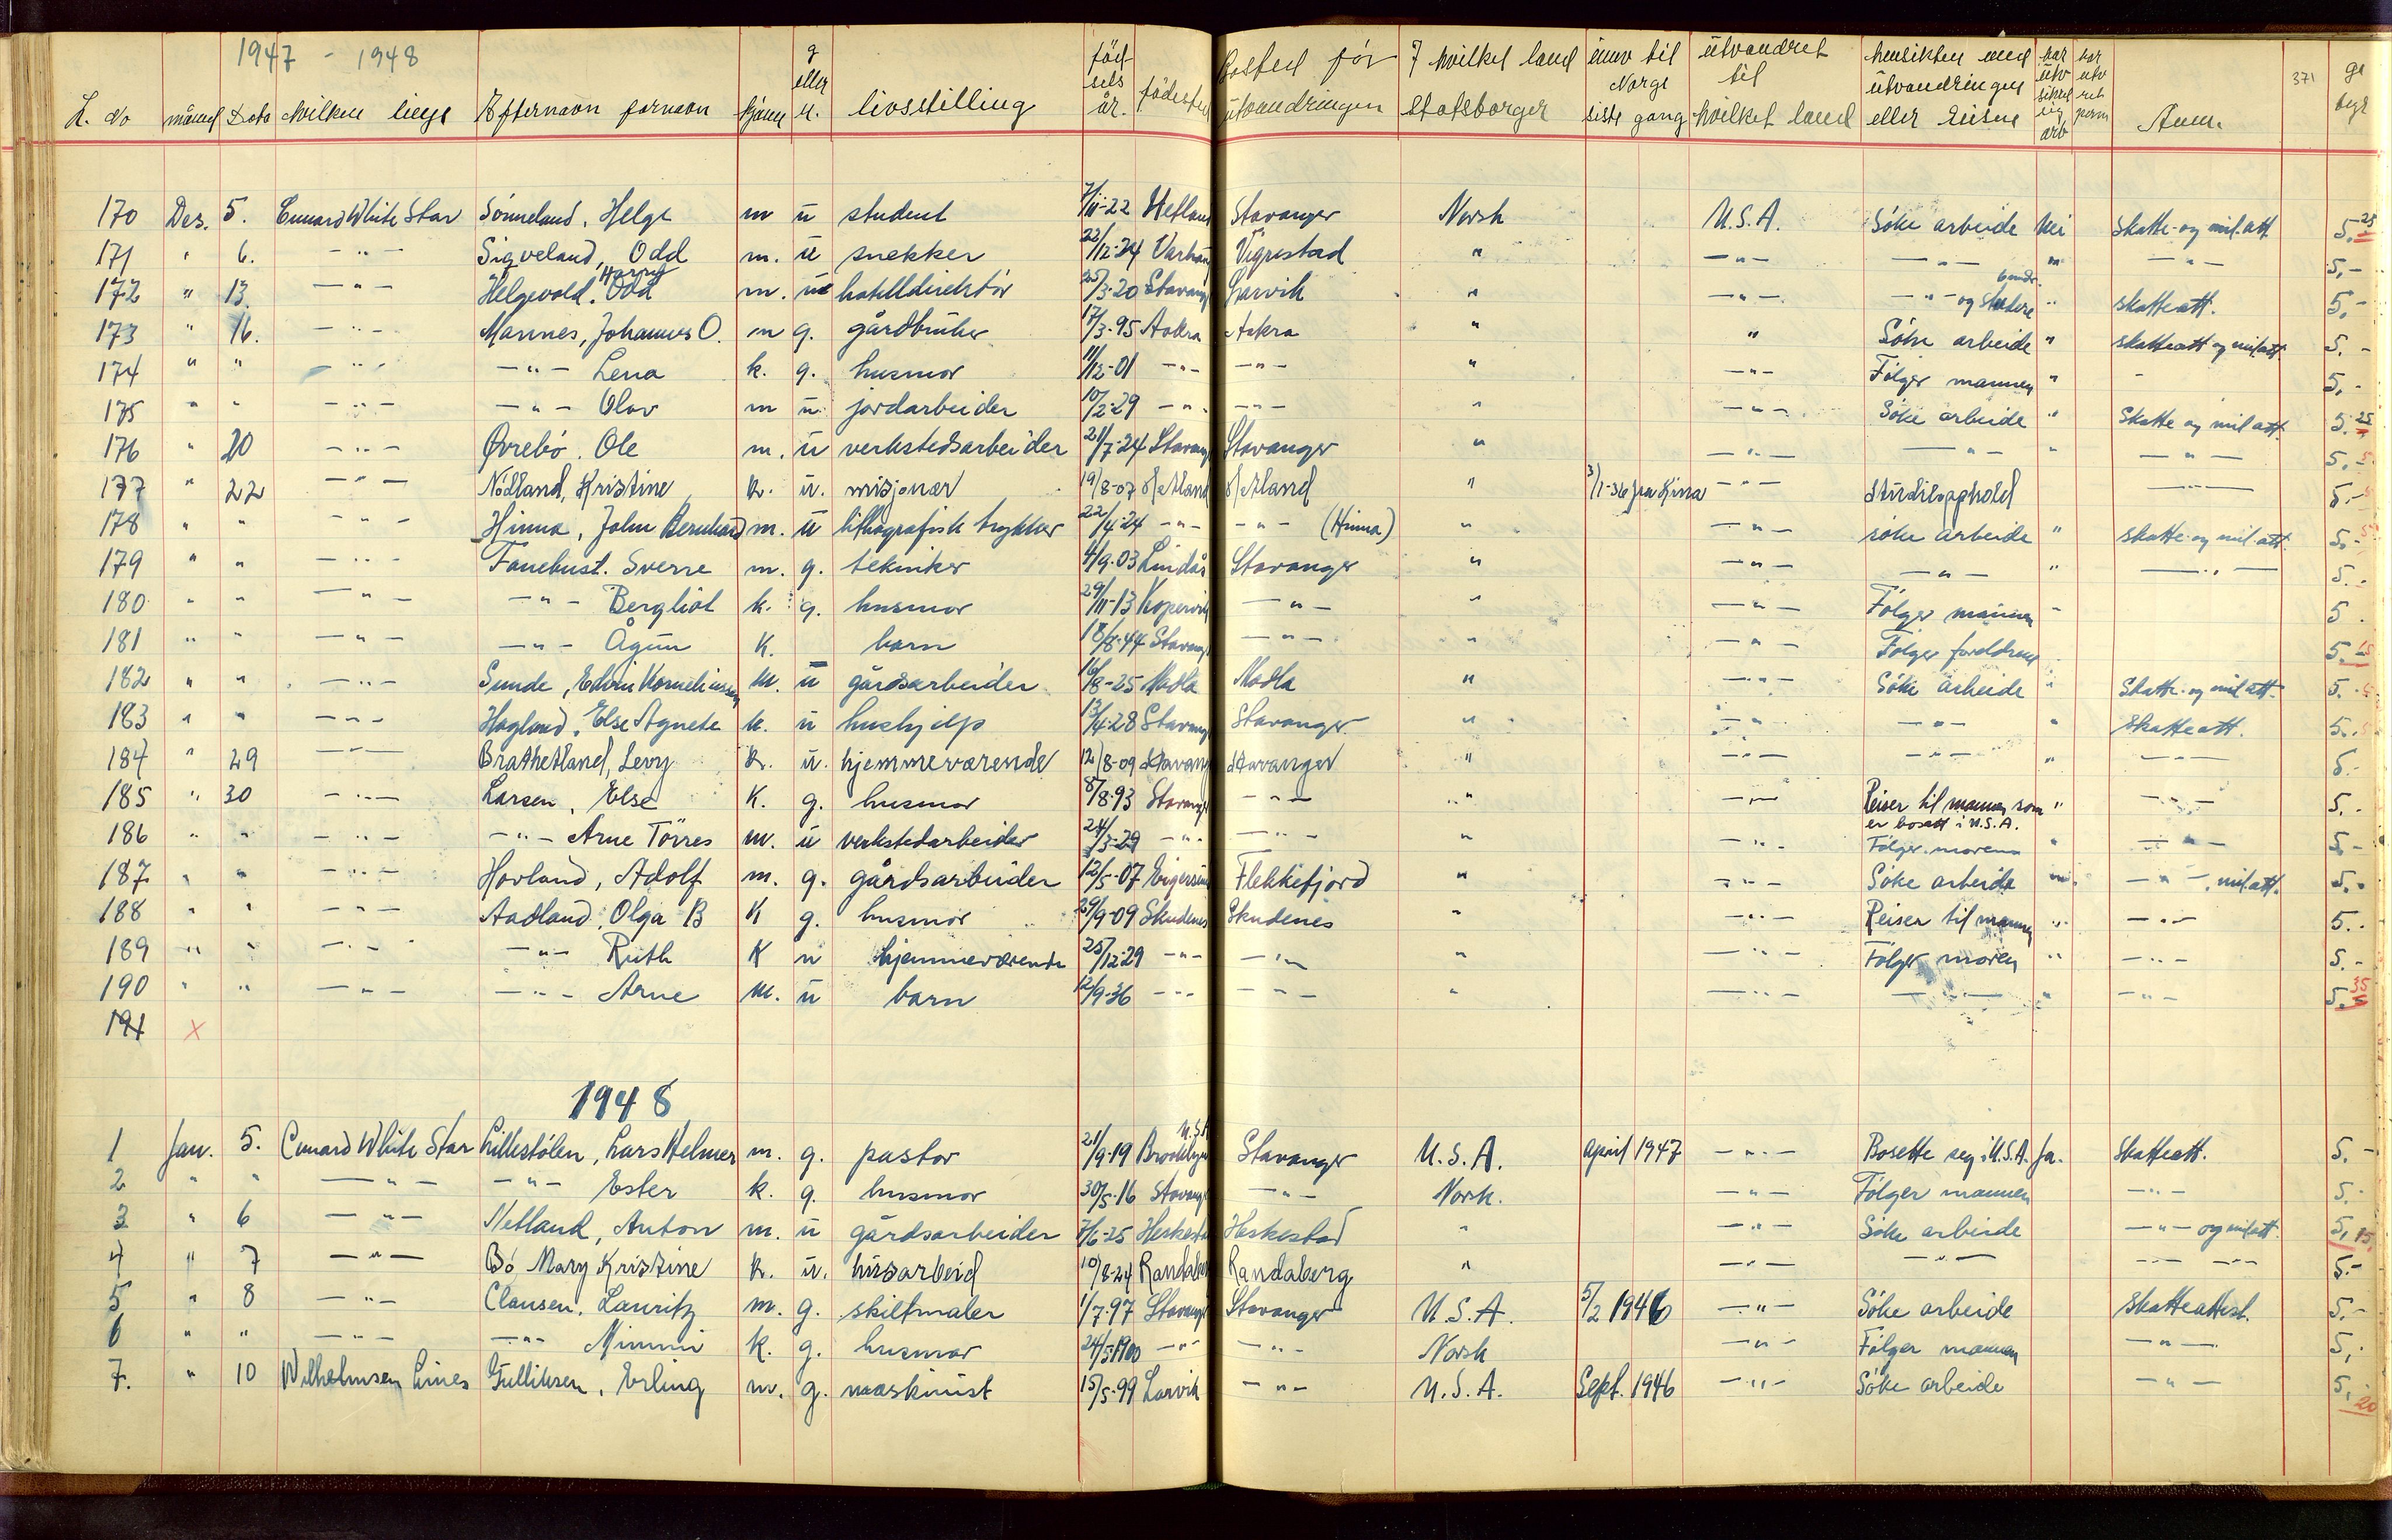 1947 - 1948
L. No måned Dato hvilken linje Efternavn fornavn kjønn g eller u. livsstilling föd sels år. födested Bosted för utvandringen I hvilket land statsborger innv til Norge siste gang utvandret til hvilket land hensikten med utvandringen eller reisen har utv sikret sig arb har utv ret Anm. 371 ge
170 Des. 5. Cunard White Star Sömneland, Helge m u student 7/11-22 Hetland Stavanger Norsk U.S.A. Söke arbeide Nei Skatte- og mil.att. 5.25
171 " 6. - " - Sigveland, Odd m. u snekker 22/12-24 Varhaug Vigrestad " - " - - " - " - " - 5,-
172 " 13. - " - Helgevold. Odd Harry m. u hotelldirektör 25/3-20 Stavang Larvik " - " - - " - og studere 6 mndr. " skatteatt. 5,-
173 " 16. - " - Mannes, Johannes O. m g. gårdbruker 17/3-95 Aakra Aakra " " Söke arbeide " skatteatt og mil.att. 5.-
174 " " - " - - " - Lena k. g. husmor 11/12-01 - " - - " - " - " - Fölger mannen " - 5,-
175 " " - " - - " - Olav m u. jordarbeider 10/2-29 - " - - " - " - " - Söke arbeide " Skatte og mil att. 5.25
176 " 20 - " - Øvrebö. Ole m. u verkstedsarbeider 21/7-24 Stavang Stavanger " - " - - " - " - " - 5.-
177 " 22 - " - Nödland, Kristine k. u. misjonær 19/8-07 Hetland Hetland " 3/1-36 fra Kina - " - Studieopphold - " - 5.-
178 " " - " - Hinna, John Bernhard m. u lithografisk trykker 22/4-24 - " - - " - (Hinna) " - " - söke arbeide " skatte- og mil.att. 5.-
179 " " - " - Fanebust. Sverre m. g. tekniker 4/9-03 Lindås Stavanger " - " - - " - " - " - 5.-
180 " " - " - - " - Bergliot k. g. husmor 29/11-13 Kopervik - " - " - " - Fölger mannen - 5.
181 " " - " - - " - Ågun K. barn 18/8-44 Stavang - " - " - " - Fölger foreldrene 5.-
182 " " - " - Sunde, Edvin Korneliussen M. u gårdsarbeider 16/8-25 Madla Madla " - " - Söke arbeide " Skatte- og mil att. 5.-
183 " " - " - Hagland, Else Agnete k. u hushjelp 13/4-28 Stavang Stavanger " - " - - " - " Skatteatt. 5.
184 " 29 - " - Brathetland, Levy k. u. hjemmeværende 12/8-09 Stavang Stavanger " - " - - " - " - " - 5.-
185 " 30 - " - Larsen, Else K. g. husmor 8/8-93 Stavang - " - " - " - Reiser til mannen som er bosatt i U.S.A. " - " - 5.-
186 " " - " - - " - Arne Törres m. u verkstedarbeider 24/3-29 - " - - " - " - " - Fölger moren " - " - 5.-
187 " " - " - Hovland, Adolf m. g. gårdsarbeider 12/5-07 Eigersund Flekkefjord " - " - Söke arbeide nei - " - , mil.att. 5.-
188 " " - " - Aadland, Olga B K g. husmor 29/9-09 Skudenes Skudenes " - " - Reiser til mannen " - " - 5.-
189 " " - " - - " - Ruth K u hjemmeværende 25/12-29 - " - - " - " - " - Fölger moren " - " - 5.-
190 " " - " - - " - Arne M. u barn 12/9-36 - " - - " - " - " - - " - " - " - 5.35
191 x
1948
1 Jan. 5. Cunard White Star Lillestölen, Lars Helmer m. g. pastor 21/9-19 Brooklyn U.S.A Stavanger U.S.A. April 1947 - " - Bosette seg i U.S.A. Ja. Skatteatt. 5.-
2 " " - " - - " - Ester k. g. husmor 30/5-16 Stavang - " - Norsk. - " - Fölger mannen - " - 5.-
3 " 6 - " - Netland, Anton m. u gårdsarbeider 7/6-25 Heskestad Heskestad " - " - Söke arbeide - " - og mil.att. 5,15
4 " 7 - " - Bö Mary Kristine k. u. husarbeid 10/8-24 Randaberg Randaberg " - " - - " - - " - - " - 5.-
5 " 8 - " - Clausen. Lauritz m. g. skiltmaler 1/7-97 Stavanger Stavanger U.S.A. 5/2 1946 - " - Söke arbeide skatteattest. 5.-
6 " " - " - - " - Mimmi k. g. husmor 24/5-1900 - " - - " - Norsk - " - Fölger mannen - " - 5,-
7. " 10 Wilhelmsen Lines Gulliksen, Erling m. g. maskinist 15/5-99 Larvik - " - U.S.A. Sept. 1946 - " - Söke arbeide - " - 5,- 20